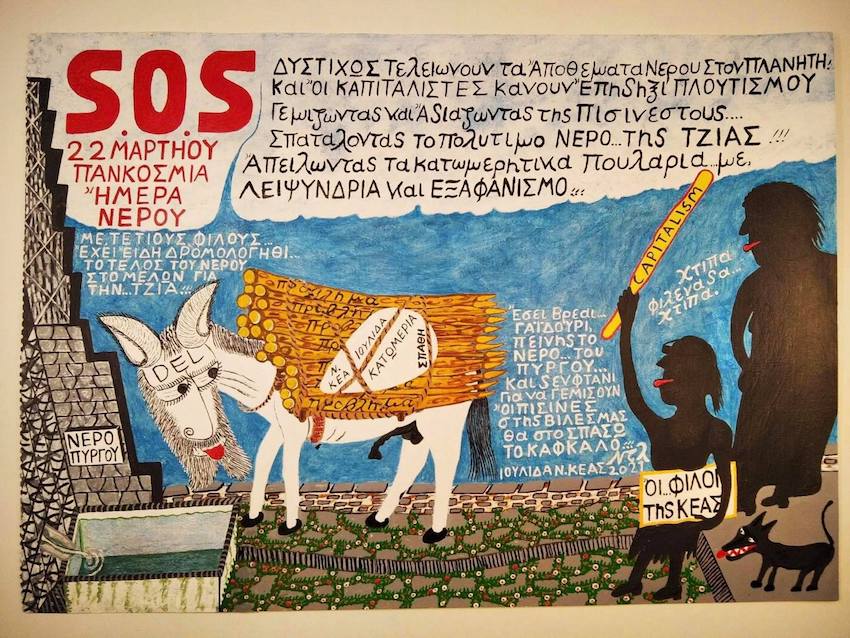 S.O.S
22 ΜΑΡΤΗΟΥ
ΠΑΝΚΟΣΜΙΑ
ΉΜΕΡΑ
ΝΕΡΟΥ
ΔΥΣΤΙΧΩΣ Τελειωνουν τα Άποθεματα Νερου Στον ΠΛΑΝΗΤΗ!
Και Οἱ ΚΑΠΙΤΑΛΙΣΤΕΣ ΚΑΝΟΥΝ Έπηδηξι ΠΛΟΥΤΙΣΜΟΥ
Γεμιζωντας και Άδιαζωντας της Πισινεστους....
Σπαταλοντας το πολυτιμο ΝΕΡΟ...Της ΤΖΙΑΣ !!!
Άπειλωντας τα κατωμερητικα Πουλαρια...με,
ΛΕΙΨΥΝΔΡΙΑ και ΕΞΑΦΑΝΙΣΜΟ...
ΜΕ, ΤΕΤΙΟΥΣ, ΦΙΛΟΥΣ...
ΈΧΕΙ ΕΙΔΗ ΔΡΟΜΟΛΟΓΗΘΙ...
ΤΟ ΤΕΛΟΣ ΤΟΥ ΝΕΡΟΥ
ΣΤΟ ΜΕΛΟΝ ΓΙΑ
ΤΗΝ...ΤΖΙΑ...!!!
CAPITALISM
ΧΤΙΠΑ
ΦΙΛΕΝΑΔΑ...
ΧΤΙΠΑ.
DEL
προβλημα
προβλη
προβ
πρ
προβλημα
Ν.
ΚΕΑ
ΙΟΥΛΙΔΑ
ΚΑΤΩΜΕΡΙΑ
ΣΠΑΘΗ
Έσει Βρεαι...
ΓΑΪΔΟΥΡΙ,
ΠΕΙΝΗΣ ΤΟ
ΝΕΡΟ...ΤΟΥ
ΠΥΡΓΟΥ...
ΚΑΙ ΔΕΝ ΦΤΑΝΙ
ΓΙΑ ΝΑ ΓΕΜΙΣΟΥΝ
ΟΙ ΠΙΣΙΝΕΣ
ΣΤΗΣ ΒΙΛΕΣ ΜΑΣ
ΘΑ ΣΤΟ ΣΠΑΣΩ
ΤΟ ΚΑΦΚΑΛΟ...
Ντελ
ΙΟΥΛΙΔΑ Ν. ΚΕΑΣ 2021
ΝΕΡΟ
ΠΥΡΓΟΥ
ΟΙ...ΦΙΛΟΙ
ΤΗς ΚΕΑΣ